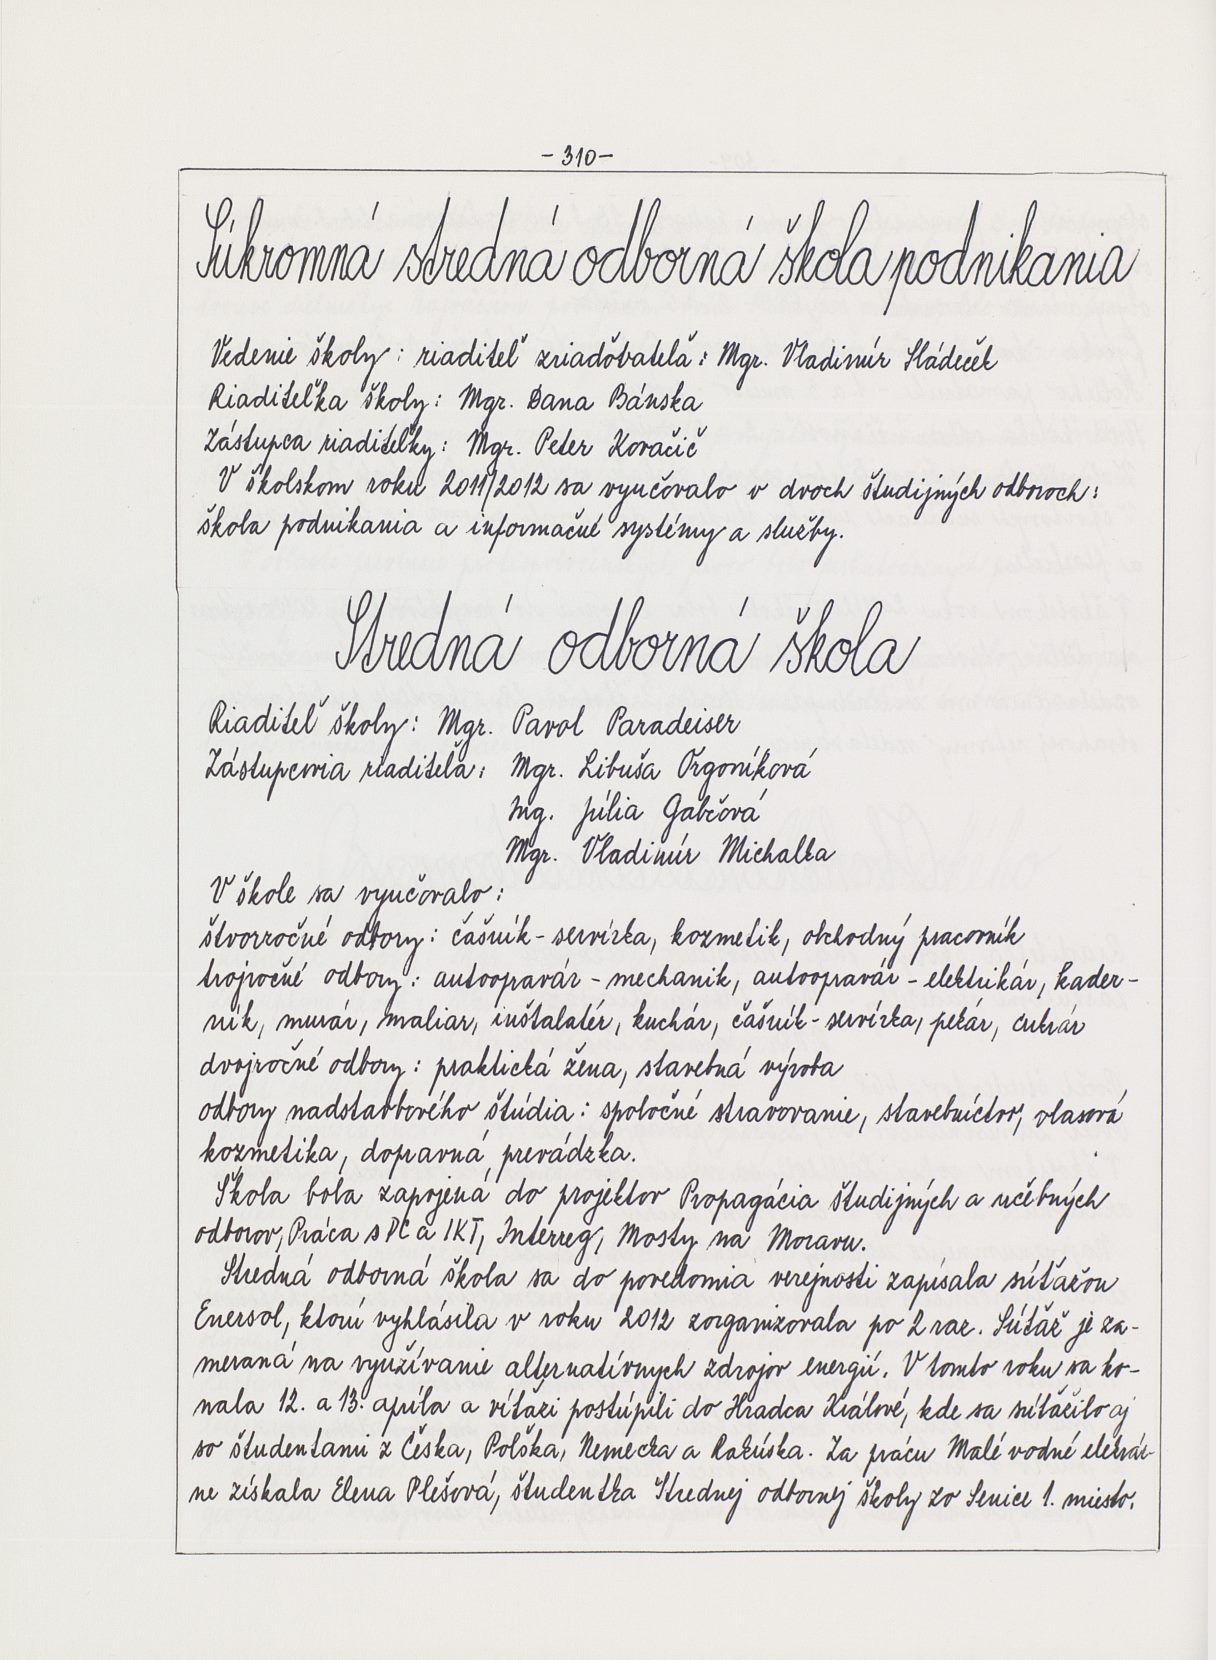 - 310 -
Súkromná stredná odborná škola podnikania
Vedenie školy: riaditeľ zriaďovateľa: Mgr. Vladimír Sládeček
Riaditeľka školy: Mgr. Dana Bánska
Zástupca riaditeľky: Mgr. Peter Kovačič
V školskom roku 2011/2012 sa vyučovalo v dvoch študijných odboroch:
škola podnikania a informačné systémy a služby.
Stredná odborná škola
Riaditeľ školy: Mgr. Pavol Paradeiser
Zástupcovia riaditeľa: Mgr. Libuša Trgoníková
Ing. Júlia Gabčová
Mgr. Vladimír Michalka
V škole sa vyučovalo:
štvorročné odbory: čašník - servírka, kozmetik, obchodný pracovník
trojročné odbory: autoopravár - mechanik, autoopravár - elektrikár, kader-
ník, murár, maliar, inštalatér, kuchár, čašník - servírka, pekár, cukrár
dvojročné odbory: praktická žena, stavebná výroba
odbory nadstavbového štúdia: spoločné stravovanie, stavebníctvo, vlasová
kozmetika, dopravná prevádzka.
Škola bola zapojená do projektov Propagácia študijných a učebných
odborov, Práca s PC a IKT, Interreg, Mosty na Moravu.
Stredná odborná škola sa do povedomia verejnosti zapísala súťažou
Enersol, ktorú vyhlásila v roku 2012 zorganizovala po 2 raz. Súťaž je za-
meraná na využívanie alternatívnych zdrojov energií. V tomto roku sa ko-
nala 12. a 13. apríla a víťazi postúpili do Hradca Králové, kde sa súťažilo aj
so študentami z Česka, Poľska, Nemecka a Rakúska. Za prácu Malé vodné elektrár-
ne získala Elena Plešová, študentka Strednej odbornej školy zo Senice 1. miesto.